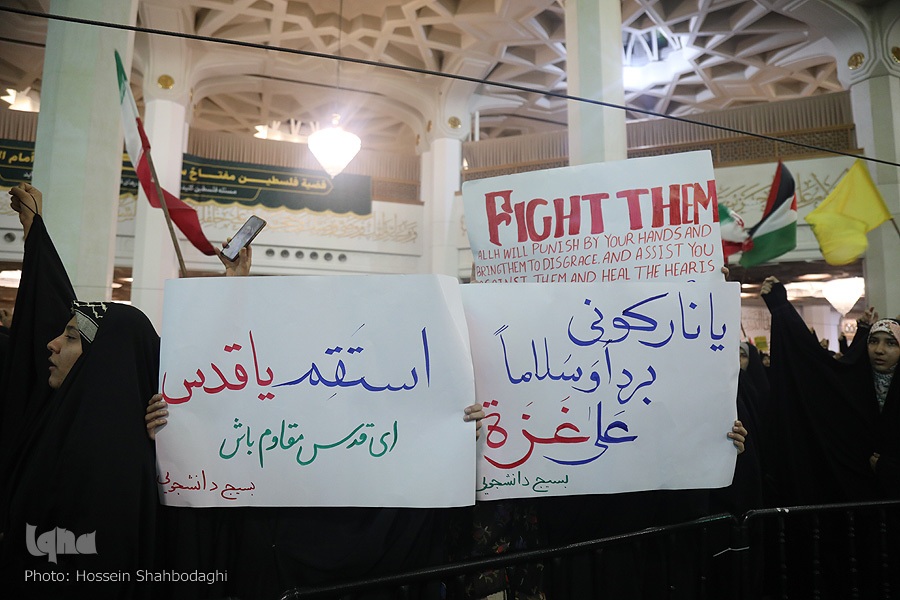 قضية فلسطين مفتاح
مسئله فلسطین کلید
FIGHT THEM
ALLH WILL PUNISH BY YOUR HANDS AND
BRING THEM TO DISGRACE. AND ASSIST YOU
AGAINST THEM AND HEAL THE HEARIS
استقم یا قدس
ای قدس مقاوم باش
بسیج دانشجویی
یا نار کونی
برداً وَسَلاماً
عَلیٰ غَزة
بسیج دانشجویی
iqna
Photo: Hossein Shahbodaghi